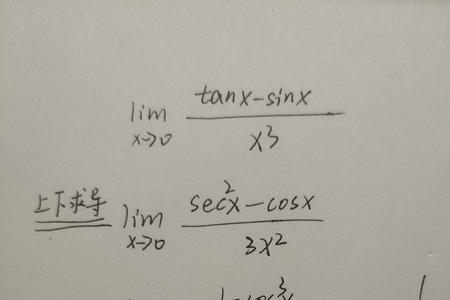 lim x→0 (tanx-sinx)/x³
上下求导 lim x→0 (sec²x-cosx)/3x²